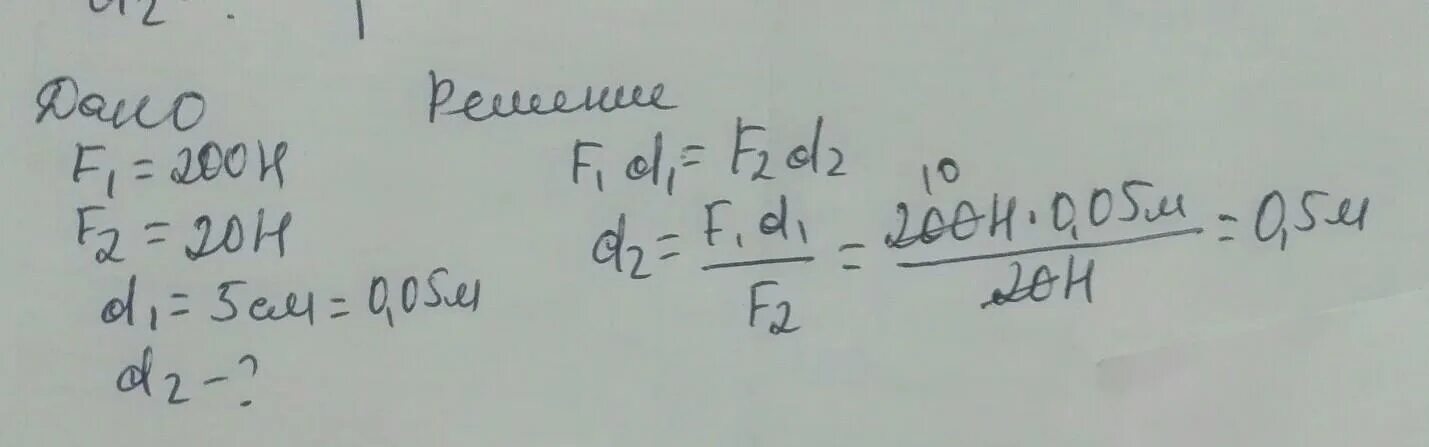 d2
Дано
F1 = 200Н
F2 = 20Н
d1 = 5см = 0,05м
d2 - ?
Решение
F1 d1 = F2 d2
d2 = F1 d1 / F2 = 200Н · 0,05м / 20Н = 0,5м
10